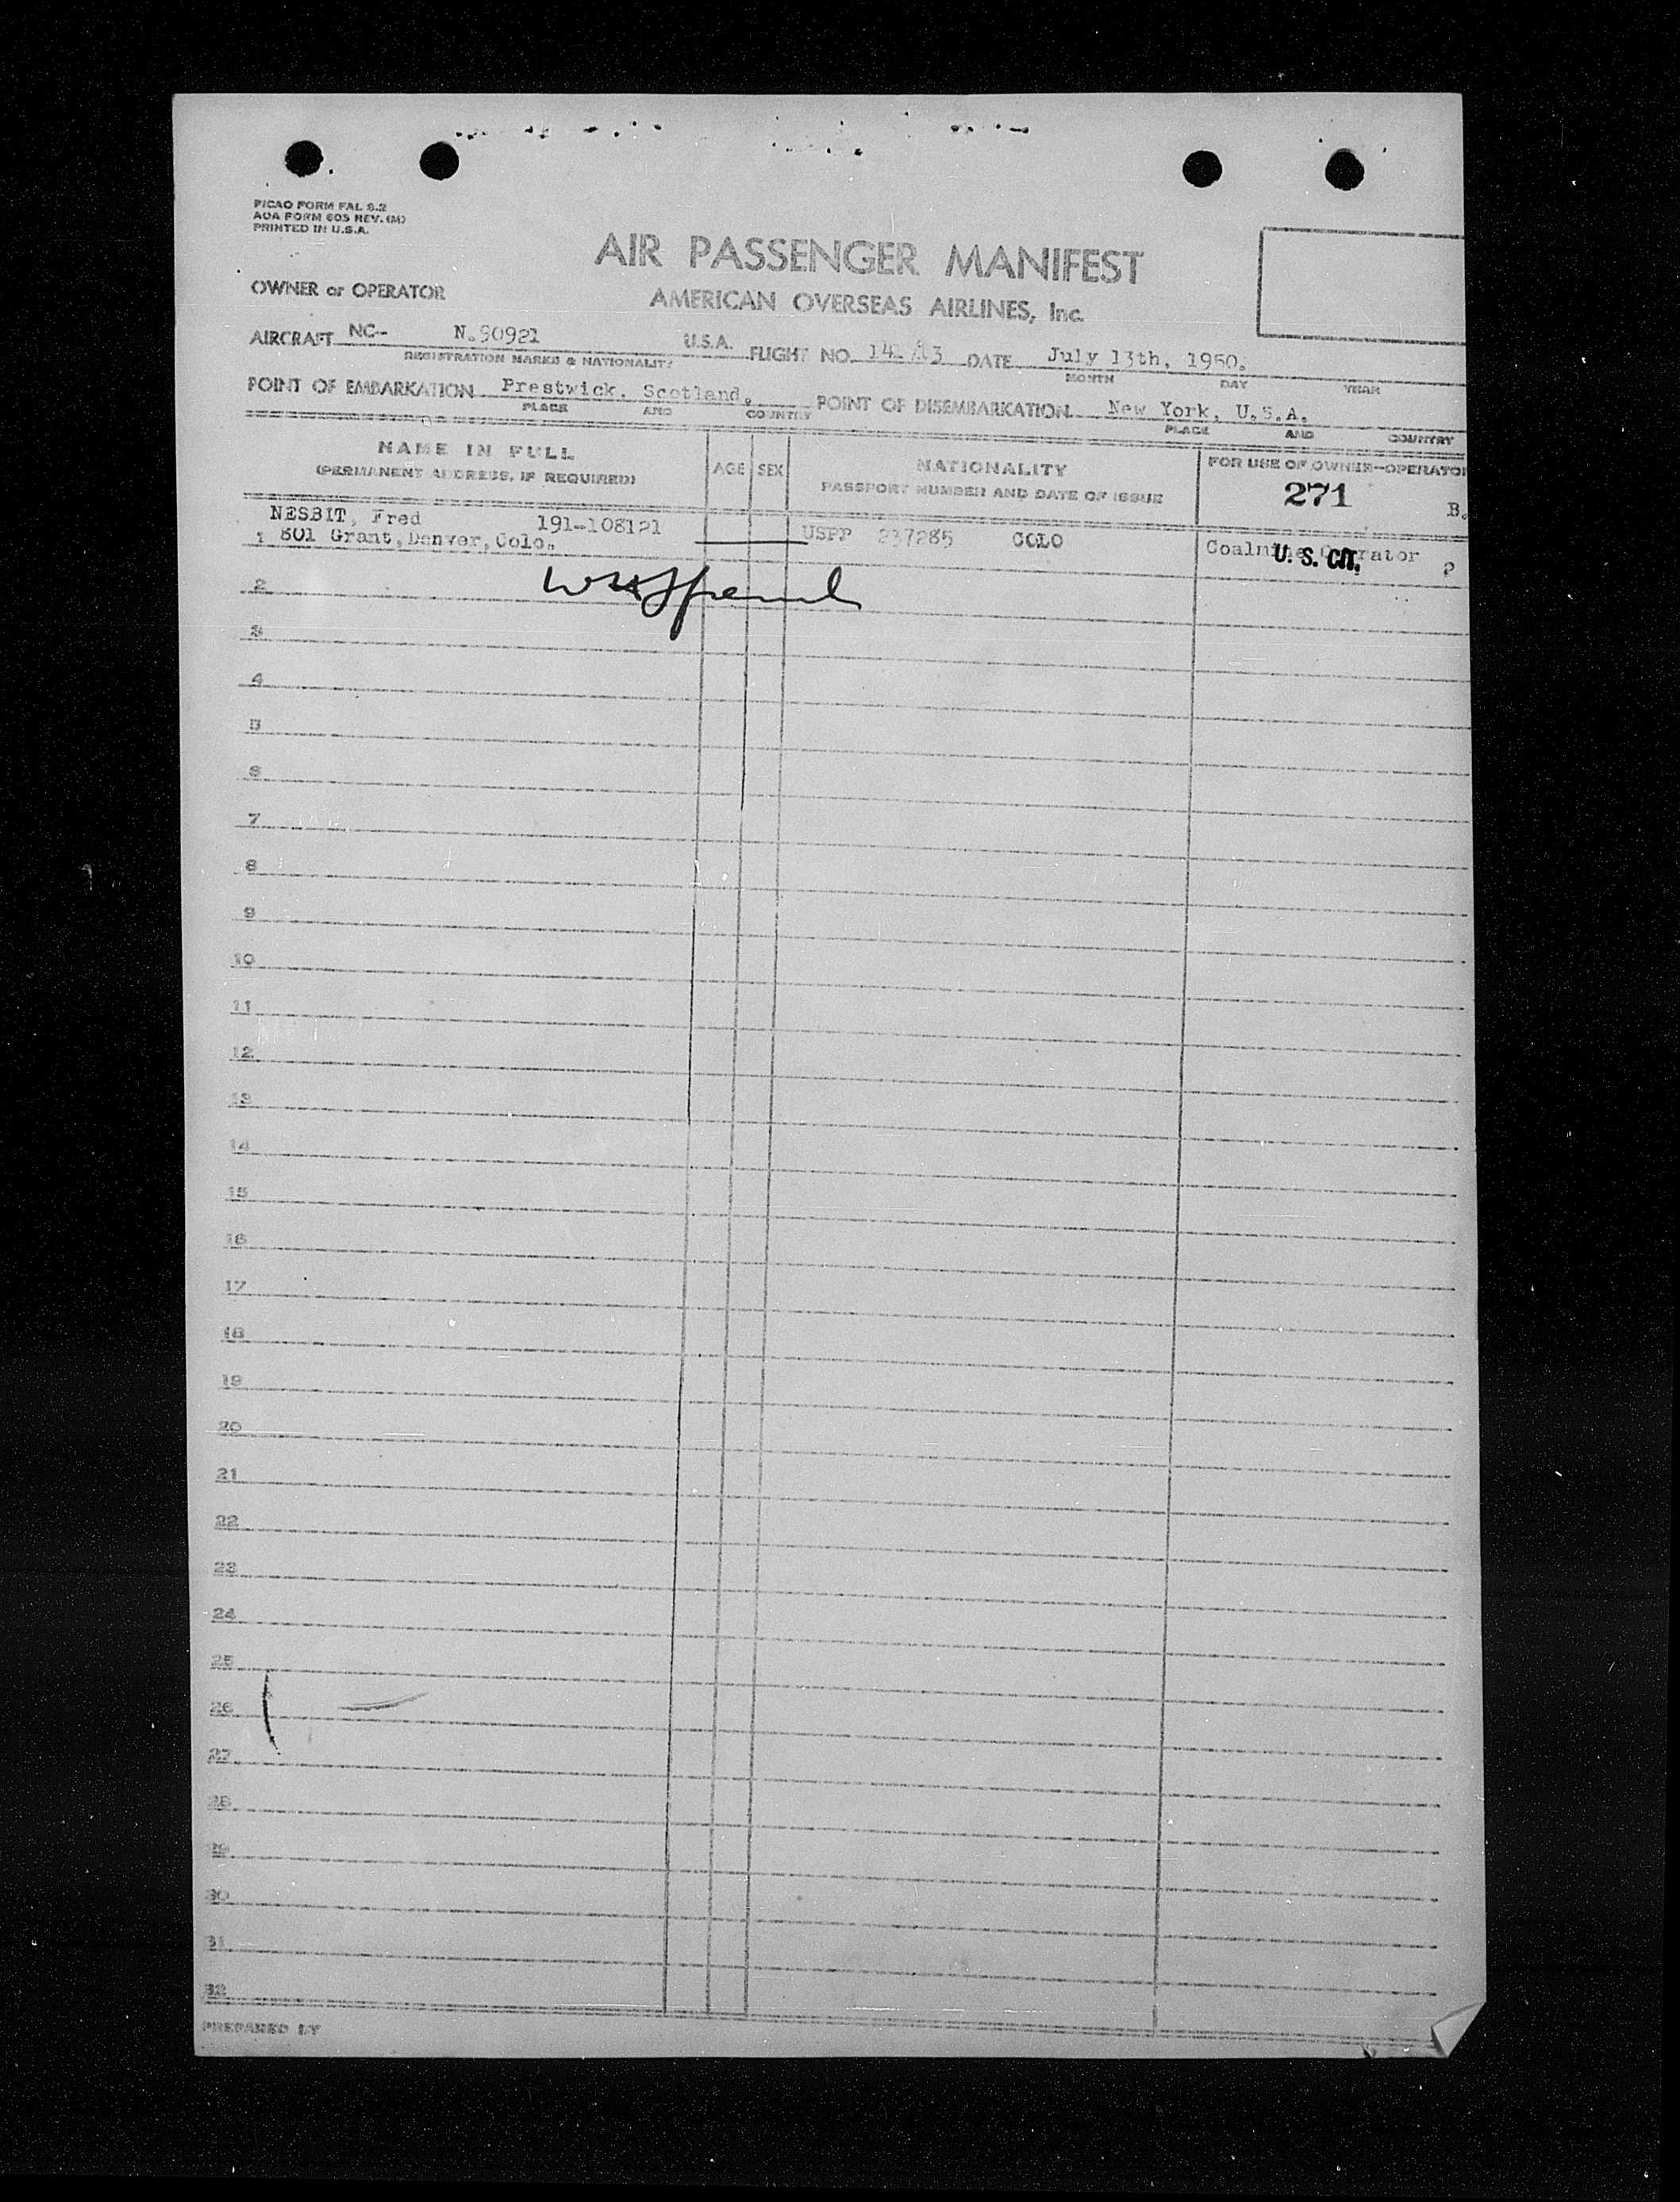 PICAO FORM FAL 8.2
AOA FORM 605 REV. (M)
PRINTED IN U.S.A.
AIR PASSENGER MANIFEST
OWNER or OPERATOR
AMERICAN OVERSEAS AIRLINES, Inc.
AIRCRAFT NC- N.90921 U.S.A. FLIGHT NO. DATE July 13th, 1950.
REGISTRATION MARKS & NATIONALITY MONTH DAY YEAR
POINT OF EMBARKATION Prestwick, Scotland. POINT OF DISEMBARKATION New York, U.S.A.
PLACE AND COUNTRY PLACE AND COUNTRY
NAME IN FULL AGE SEX NATIONALITY FOR USE OF OWNER-OPERATOR
(PERMANENT ADDRESS, IF REQUIRED) PASSPORT NUMBER AND DATE OF ISSUE 271 B.
NESBIT, Fred 191-108121 USPP 237285 COLO
1 801 Grant, Denver, Colo. Coalmine Operator
U. S. CIT.
2
3
4
5
6
7
8
9
10
11
12
13
14
15
16
17
18
19
20
21
22
23
24
25
26
27
28
29
30
31
32
PREPARED BY